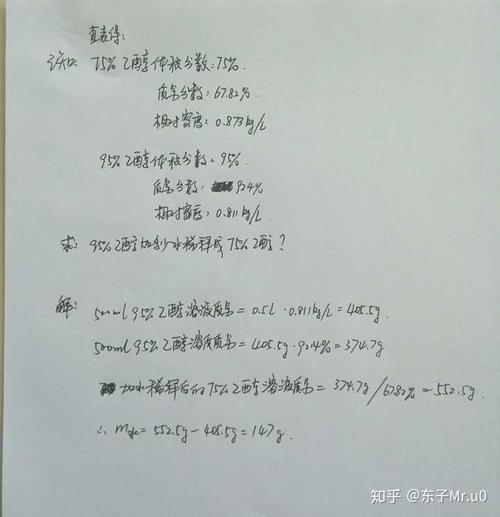 查表得:
已知: 75%乙醇体积分数=75%.
质量分数: 67.82%.
相对密度: 0.873kg/L
95%乙醇体积分数=95%.
质量分数: 92.4%
相对密度: 0.811kg/L.
求: 95%乙醇加多少水稀释成75%乙醇?
解: 500ml 95%乙醇溶液质量=0.5L·0.811kg/L=405.5g.
500ml 95%乙醇溶质质量=405.5g·92.4%=374.7g
加水稀释后的75%乙醇溶液质量=374.7g/67.82%=552.5g
∴ m水=552.5g-405.5g=147g.
知乎 @东子Mr.u0